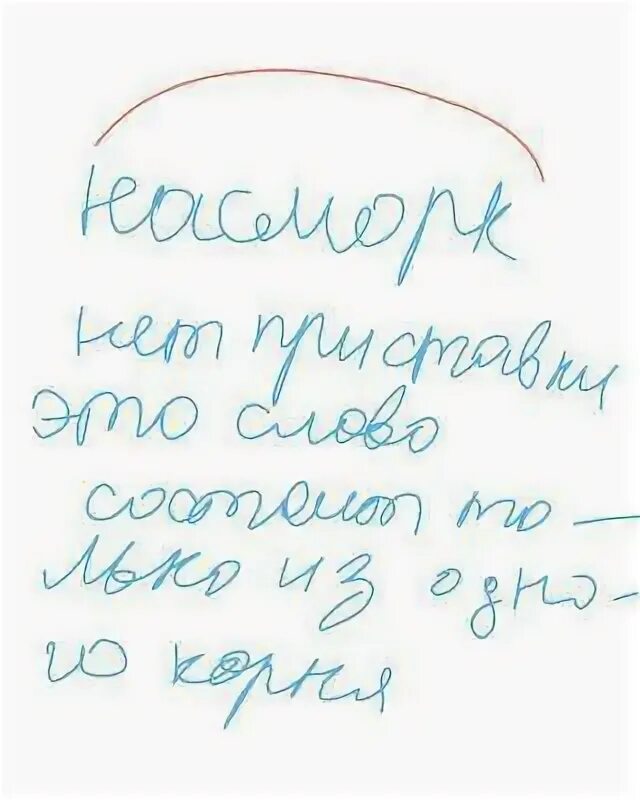 насморк
нет приставки
это слово
состоит то-
лько из одно-
го корня